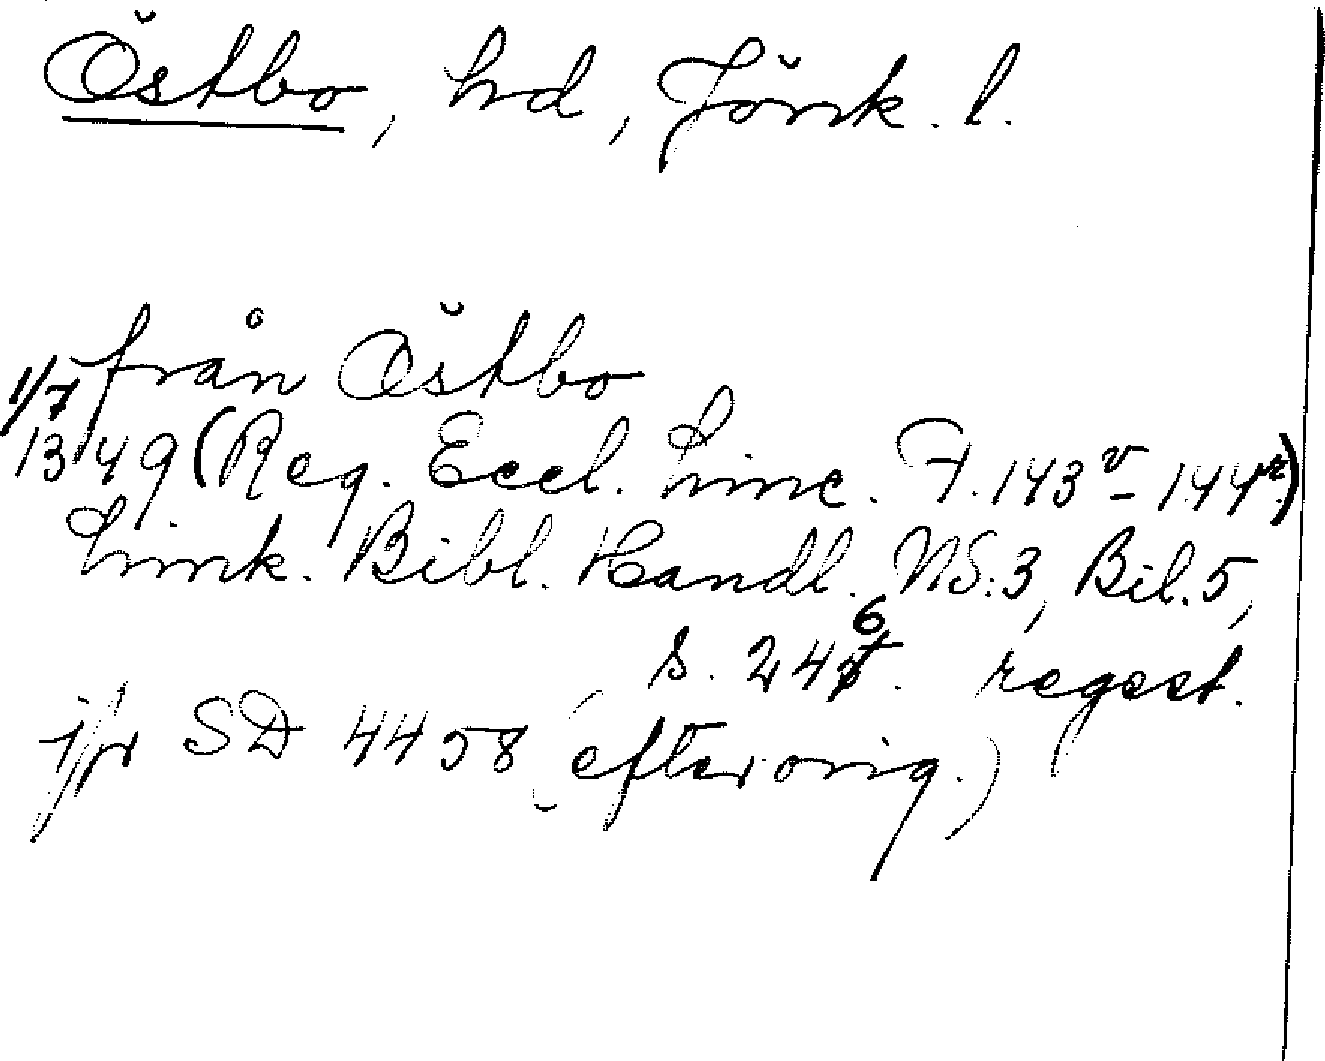 Östbo, hd, Jönk. l.
från Östbo
1/7 1349 (Reg. Eccl. Linc. F. 143v - 144r)
Link. Bibl. Handl. NS:3, Bil. 5,
s. 246. regest.
jfr SD 4458 (efter orig.)